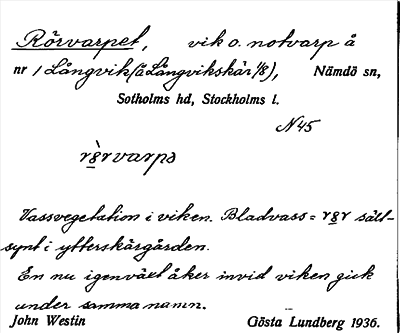 Rörvarpet, vik o. notvarp å
nr 1 Långvik (å Långvikskär 1/8), Nämdö sn,
Sotholms hd, Stockholms l.
N45
rö̀rvarpə
Vassvegetation i viken. Bladvass = rör säll-
synt i ytterskärgården.
En nu igenväxt åker invid viken gick
under samma namn.
John Westin Gösta Lundberg 1936.